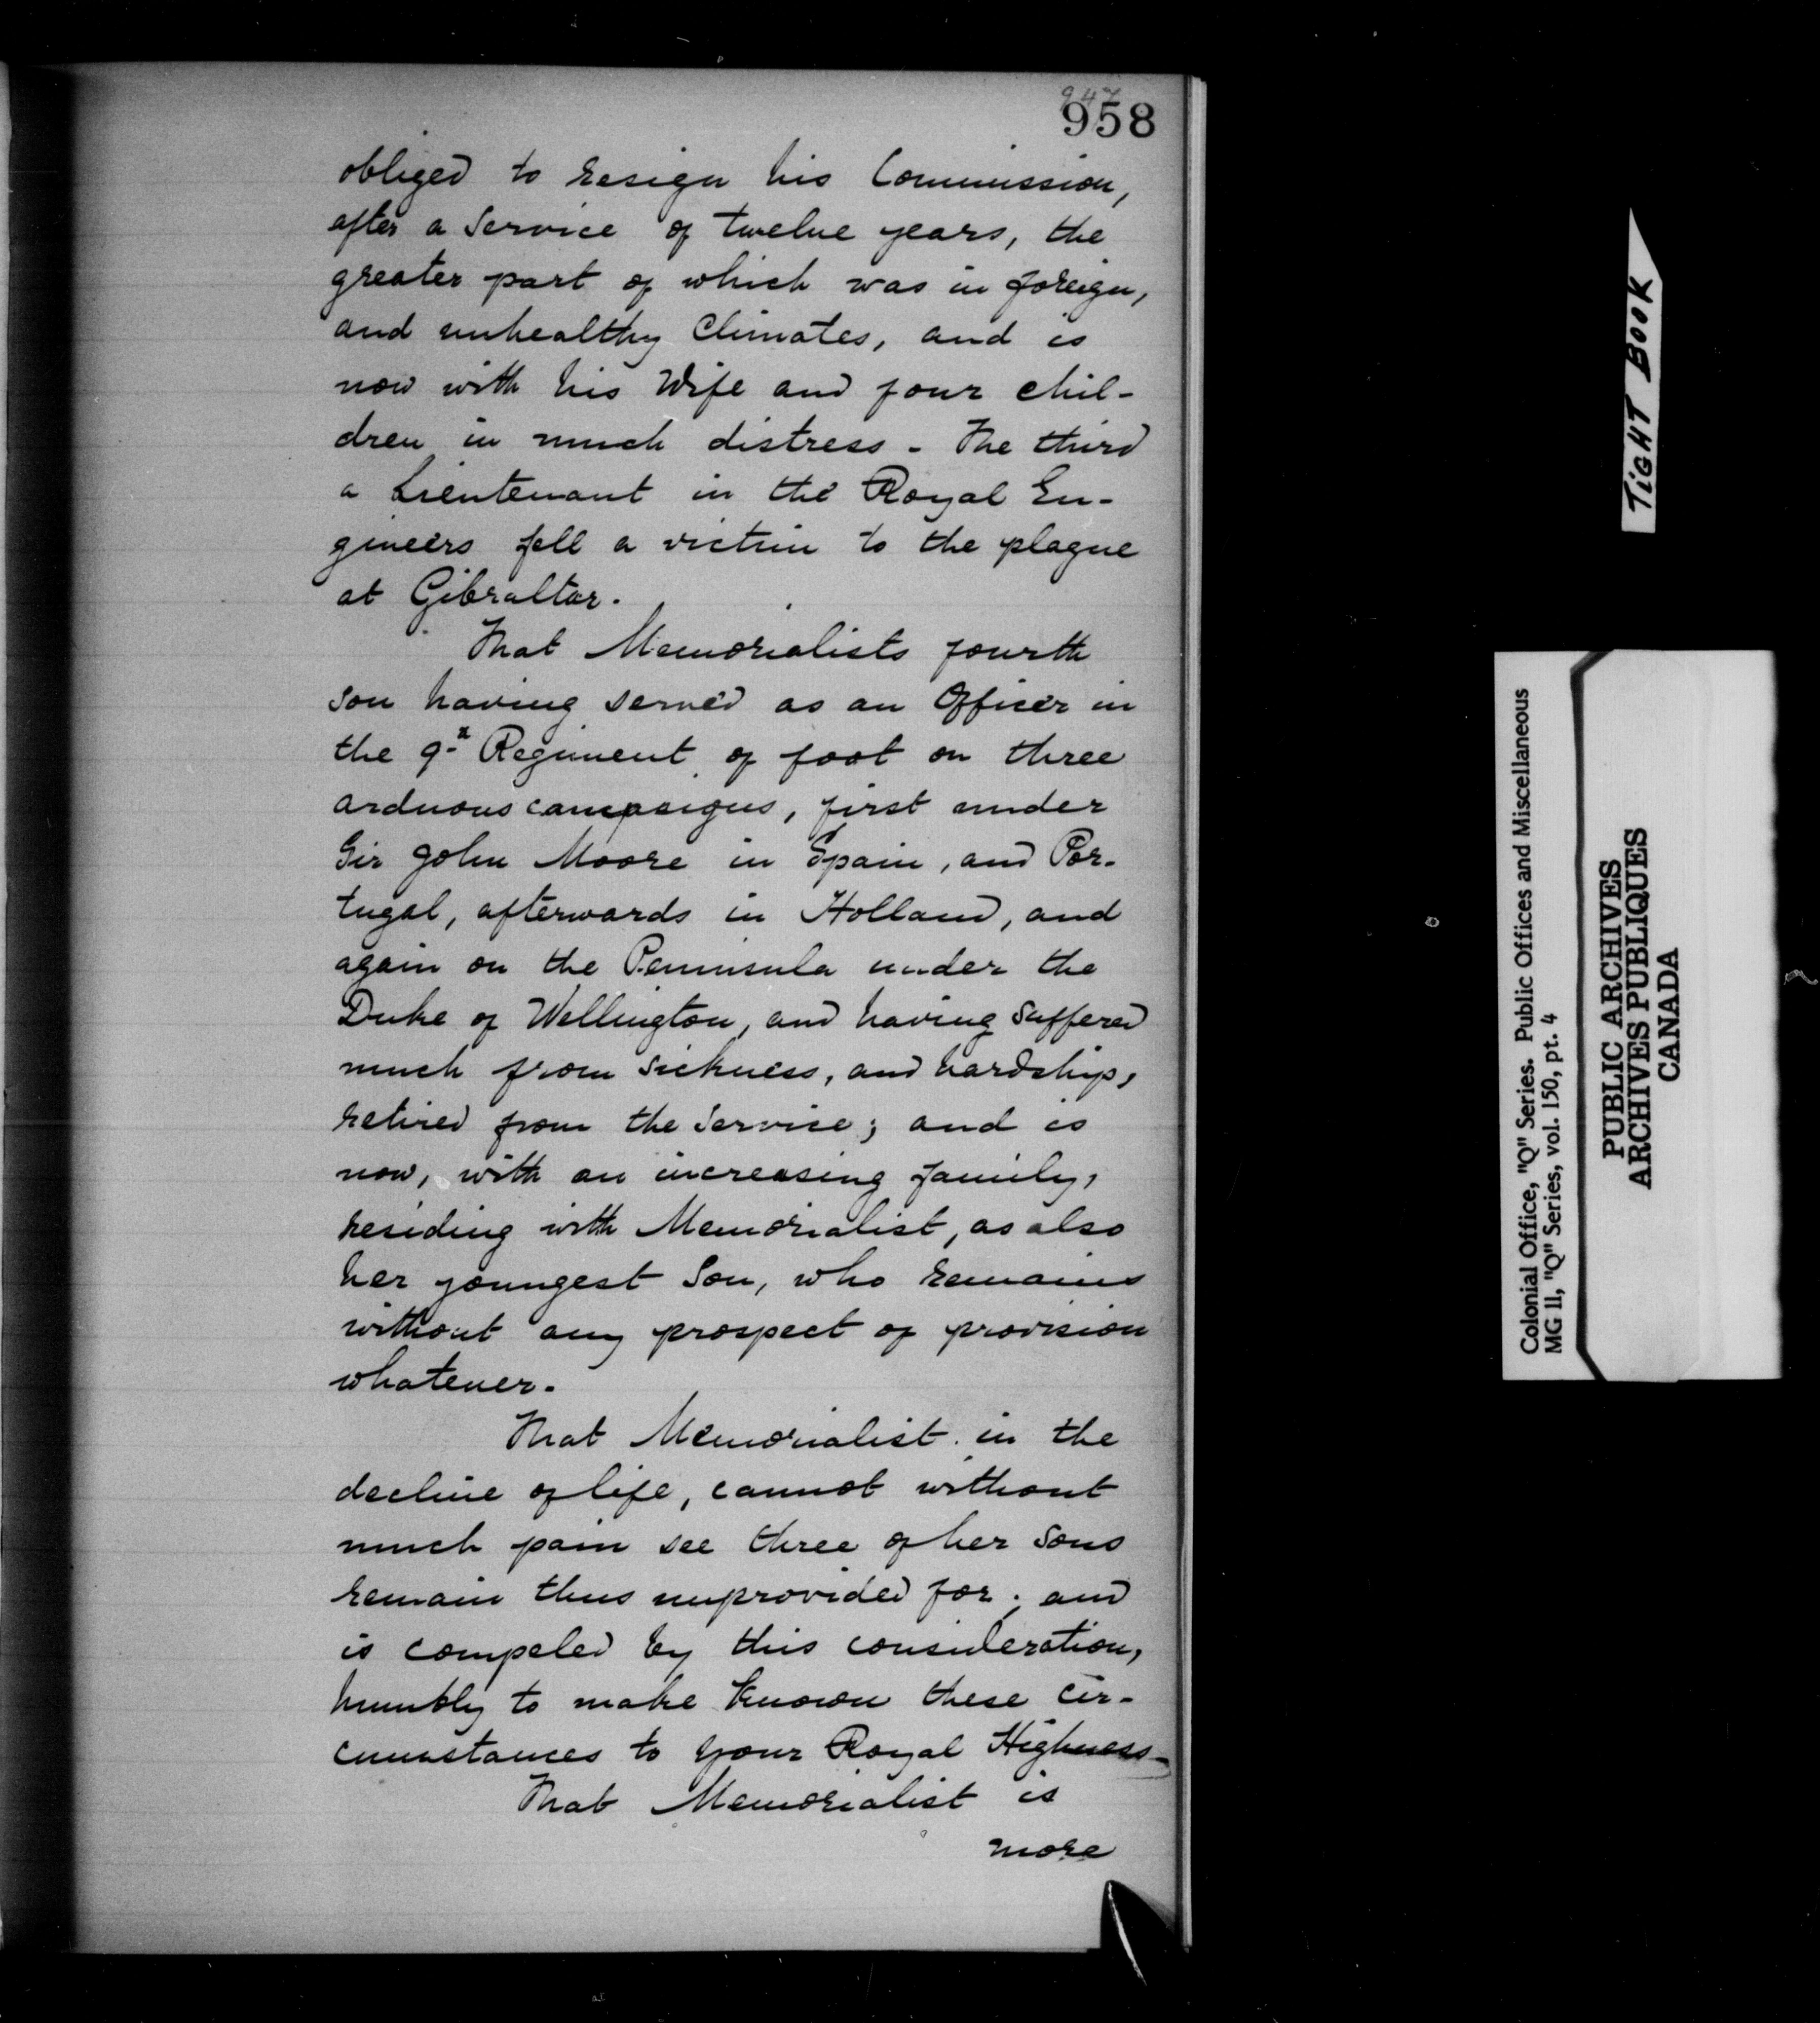 947
958
obliged to resign his Commission,
after a Service of twelve years, the
greater part of which was in foreign,
and unhealthy Climates, and is
now with his Wife and four chil-
dren in much distress - The third
a Lieutenant in the Royal En-
gineers fell a victim to the plague
at Gibraltar.
That Memorialists fourth
Son having served as an Officer in
the 9th Regiment of foot on three
arduous campaigns, first under
Sir John Moore in Spain, and Por-
tugal, afterwards in Holland, and
again on the Peninsula under the
Duke of Wellington, and having Suffered
much from Sickness, and hardship,
retired from the Service; and is
now, with an increasing family,
residing with Memorialist, as also
her youngest Son, who remains
without any prospect of provision
whatever.
That Memorialist in the
decline of life, cannot without
much pain see three of her Sons
remain thus unprovided for; and
is compeled by this consideration,
humbly to make known these cir-
cumstances to your Royal Highness-
That Memorialist is
more
TIGHT BOOK
Colonial Office, "Q" Series. Public Offices and Miscellaneous
MG 11, "Q" Series, vol. 150, pt. 4
PUBLIC ARCHIVES
ARCHIVES PUBLIQUES
CANADA